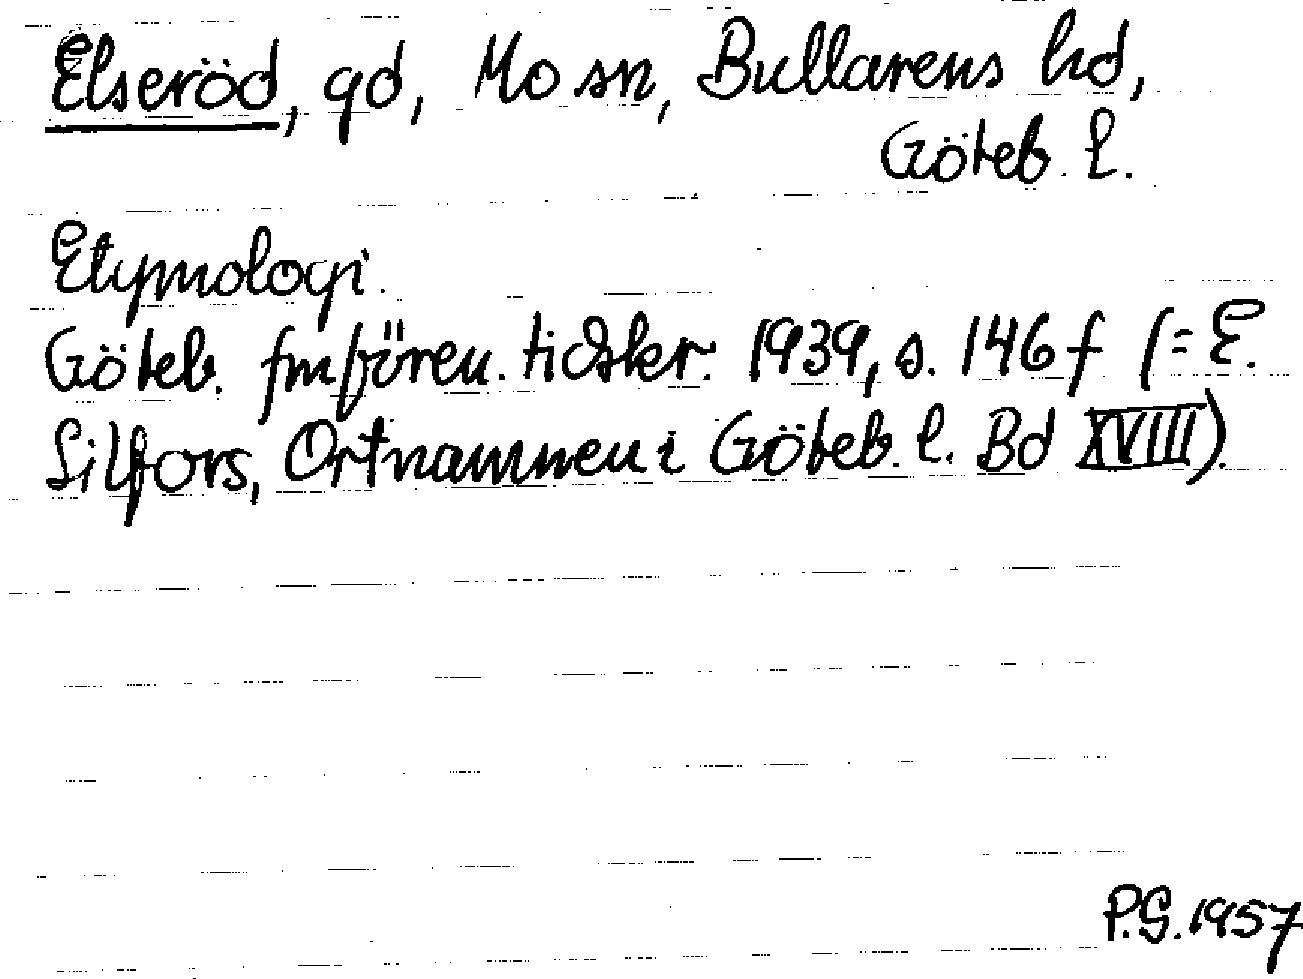 Elseröd, gd, Mo sn, Bullarens hd,
Göteb. l.
Etymologi.
Göteb. fmfören. tidskr. 1939, s. 146 f (= E.
Silfors, Ortnamnen i Göteb. l. Bd XVIII).
P.G. 1957